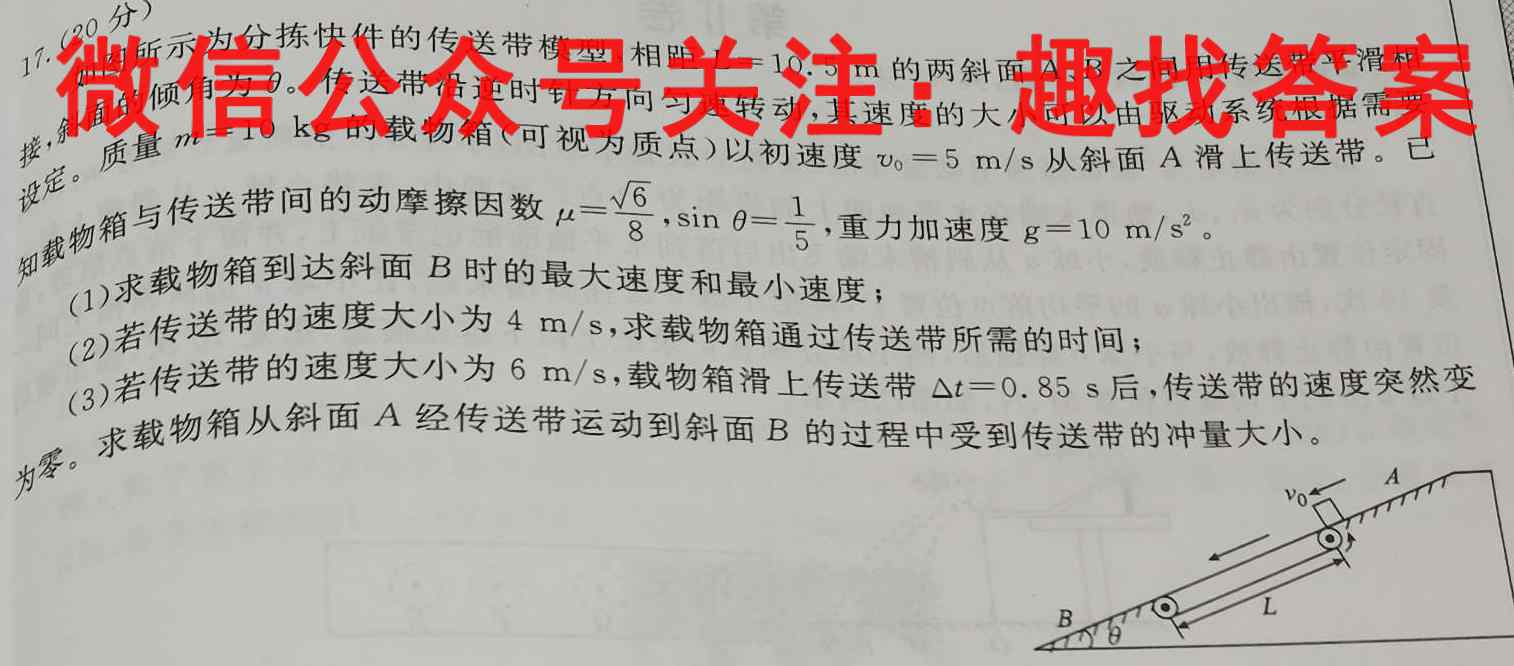 17.(20分)
如图所示为分拣快件的传送带模型,相距 L=10.5 m 的两斜面 A、B 之间用传送带平滑相
接,斜面的倾角为 θ。传送带沿逆时针方向匀速转动,其速度的大小可以由驱动系统根据需要
设定。质量 m=10 kg 的载物箱(可视为质点)以初速度 v₀=5 m/s 从斜面 A 滑上传送带。已
知载物箱与传送带间的动摩擦因数 μ=√6/8,sin θ=1/5,重力加速度 g=10 m/s²。
(1)求载物箱到达斜面 B 时的最大速度和最小速度;
(2)若传送带的速度大小为 4 m/s,求载物箱通过传送带所需的时间;
(3)若传送带的速度大小为 6 m/s,载物箱滑上传送带 Δt=0.85 s 后,传送带的速度突然变
为零。求载物箱从斜面 A 经传送带运动到斜面 B 的过程中受到传送带的冲量大小。
微信公众号关注:趣找答案
v₀
A
L
B
θ